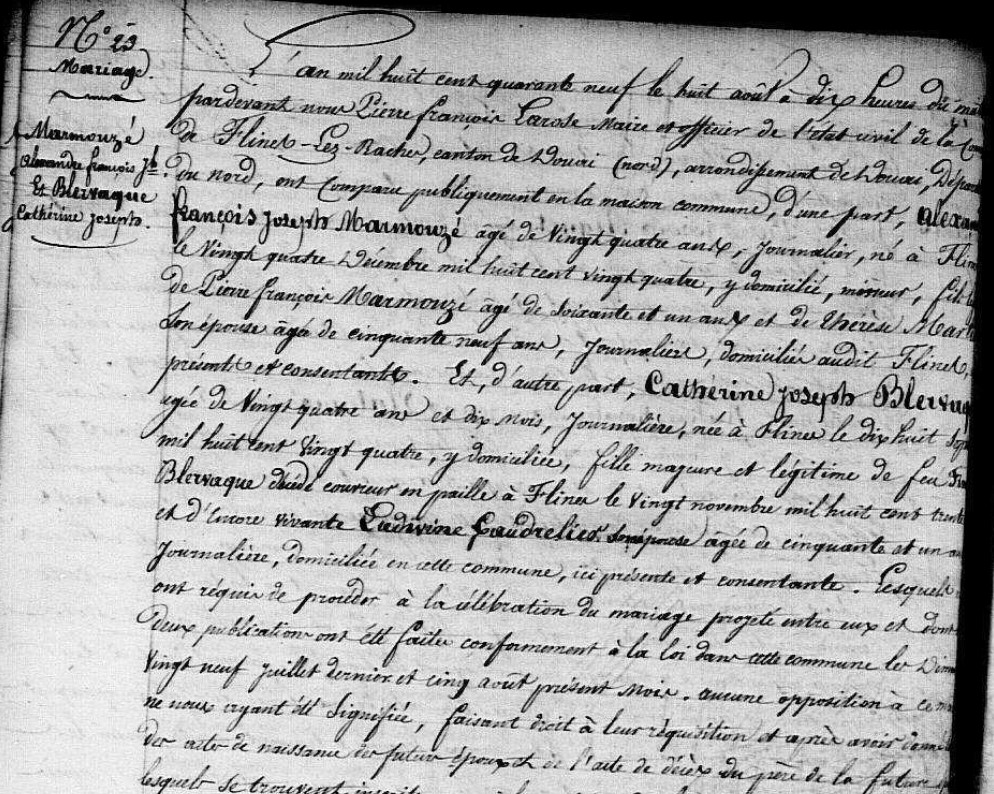 N° 23
Mariage
Marmouzé
Alexandre françois Jh.
Et Blervaque
Catherine Joseph.
L'an mil huit cent quarante neuf le huit août à dix heures du mat
pardevant nous Pierre françois Larose Maire et officier de l'état civil de la Com
de Flines-Les-Raches, canton de Douai (nord), arrondissement de Douai, Dépar
du nord, ont Comparu publiquement en la maison commune, d'une part, Alexan
françois Joseph Marmouzé agé de Vingt quatre ans, Journalier, né à Flin
le Vingt quatre Décembre mil huit cent vingt quatre, y domicilié, mineur, fils
de Pierre françois Marmouzé âgé de soixante et un ans et de thérèse Mart
son épouse âgée de cinquante neuf ans, Journaliers, domiciliés audit Flines,
présents et consentants. Et, d'autre part, Catherine Joseph Blervaq
agée de Vingt quatre ans et dix mois, Journalière, née à Flines le dix huit Sep
mil huit cent Vingt quatre, y domiciliée, fille majeure et légitime de feu
Blervaque décédé couvreur en paille à Flines le Vingt novembre mil huit cent trente
et d'Encore vivante Ludivine Caudrelier, son épouse âgée de cinquante et un a
Journalière, domiciliée en cette commune, ici présente et consentante. Lesquels
ont réquis de procéder à la célébration du mariage projeté entre eux et dont
deux publications ont été faites conformement à la loi dans cette commune les Dim
Vingt neuf Juillet dernier et cinq août présent mois. aucune opposition à ce m
ne nous ayant été Signifiée, faisant droit à leur réquisition et après avoir donné
des actes de naissance des futurs époux et de l'acte de décès du père de la future
lesquels se trouvent inscrits